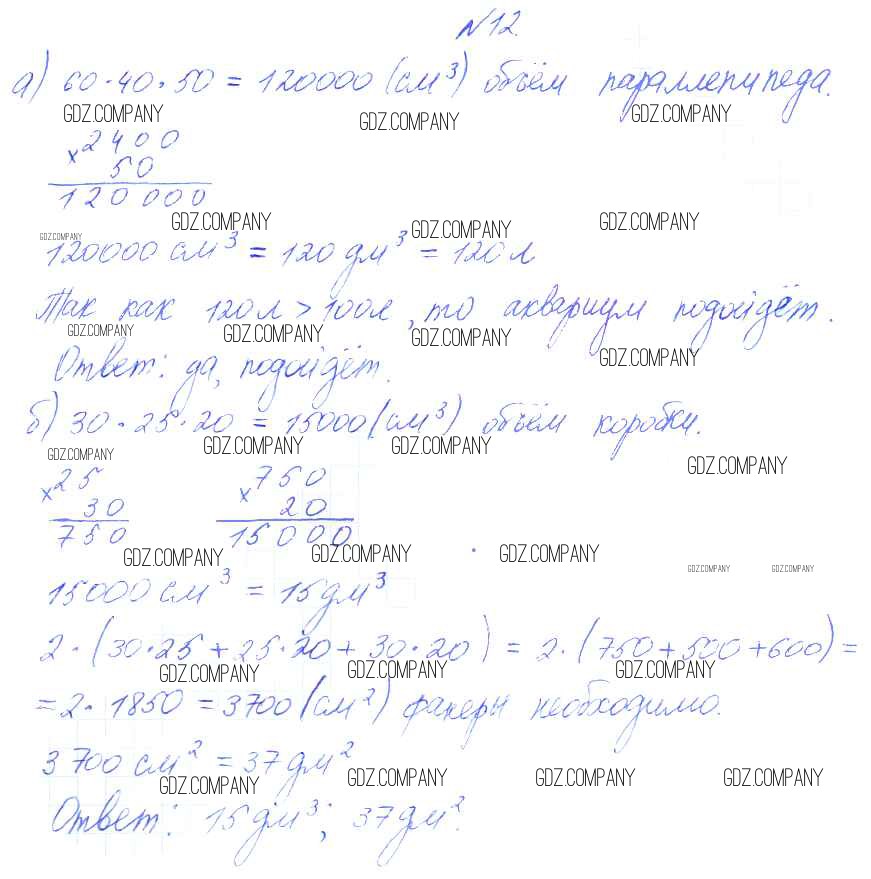 №12.
а) 60·40·50 = 120000 (см³) объём параллепипеда.
GDZ.COMPANY GDZ.COMPANY GDZ.COMPANY
× 2400
50
120 000
GDZ.COMPANY GDZ.COMPANY GDZ.COMPANY
GDZ.COMPANY
120000 см³ = 120 дм³ = 120 л
Так как 120л > 100л, то аквариум подойдёт.
GDZ.COMPANY GDZ.COMPANY GDZ.COMPANY GDZ.COMPANY
Ответ: да, подойдёт.
б) 30·25·20 = 15000 (см³) объём коробки.
GDZ.COMPANY GDZ.COMPANY GDZ.COMPANY GDZ.COMPANY
× 25 × 750
30 20
750 15000
GDZ.COMPANY GDZ.COMPANY GDZ.COMPANY GDZ.COMPANY GDZ.COMPANY
15000 см³ = 15 дм³
2·(30·25 + 25·20 + 30·20) = 2·(750+500+600) =
GDZ.COMPANY GDZ.COMPANY GDZ.COMPANY
= 2·1850 = 3700 (см²) фанеры необходимо.
3700 см² = 37 дм²
GDZ.COMPANY GDZ.COMPANY GDZ.COMPANY GDZ.COMPANY
Ответ: 15 дм³; 37 дм².